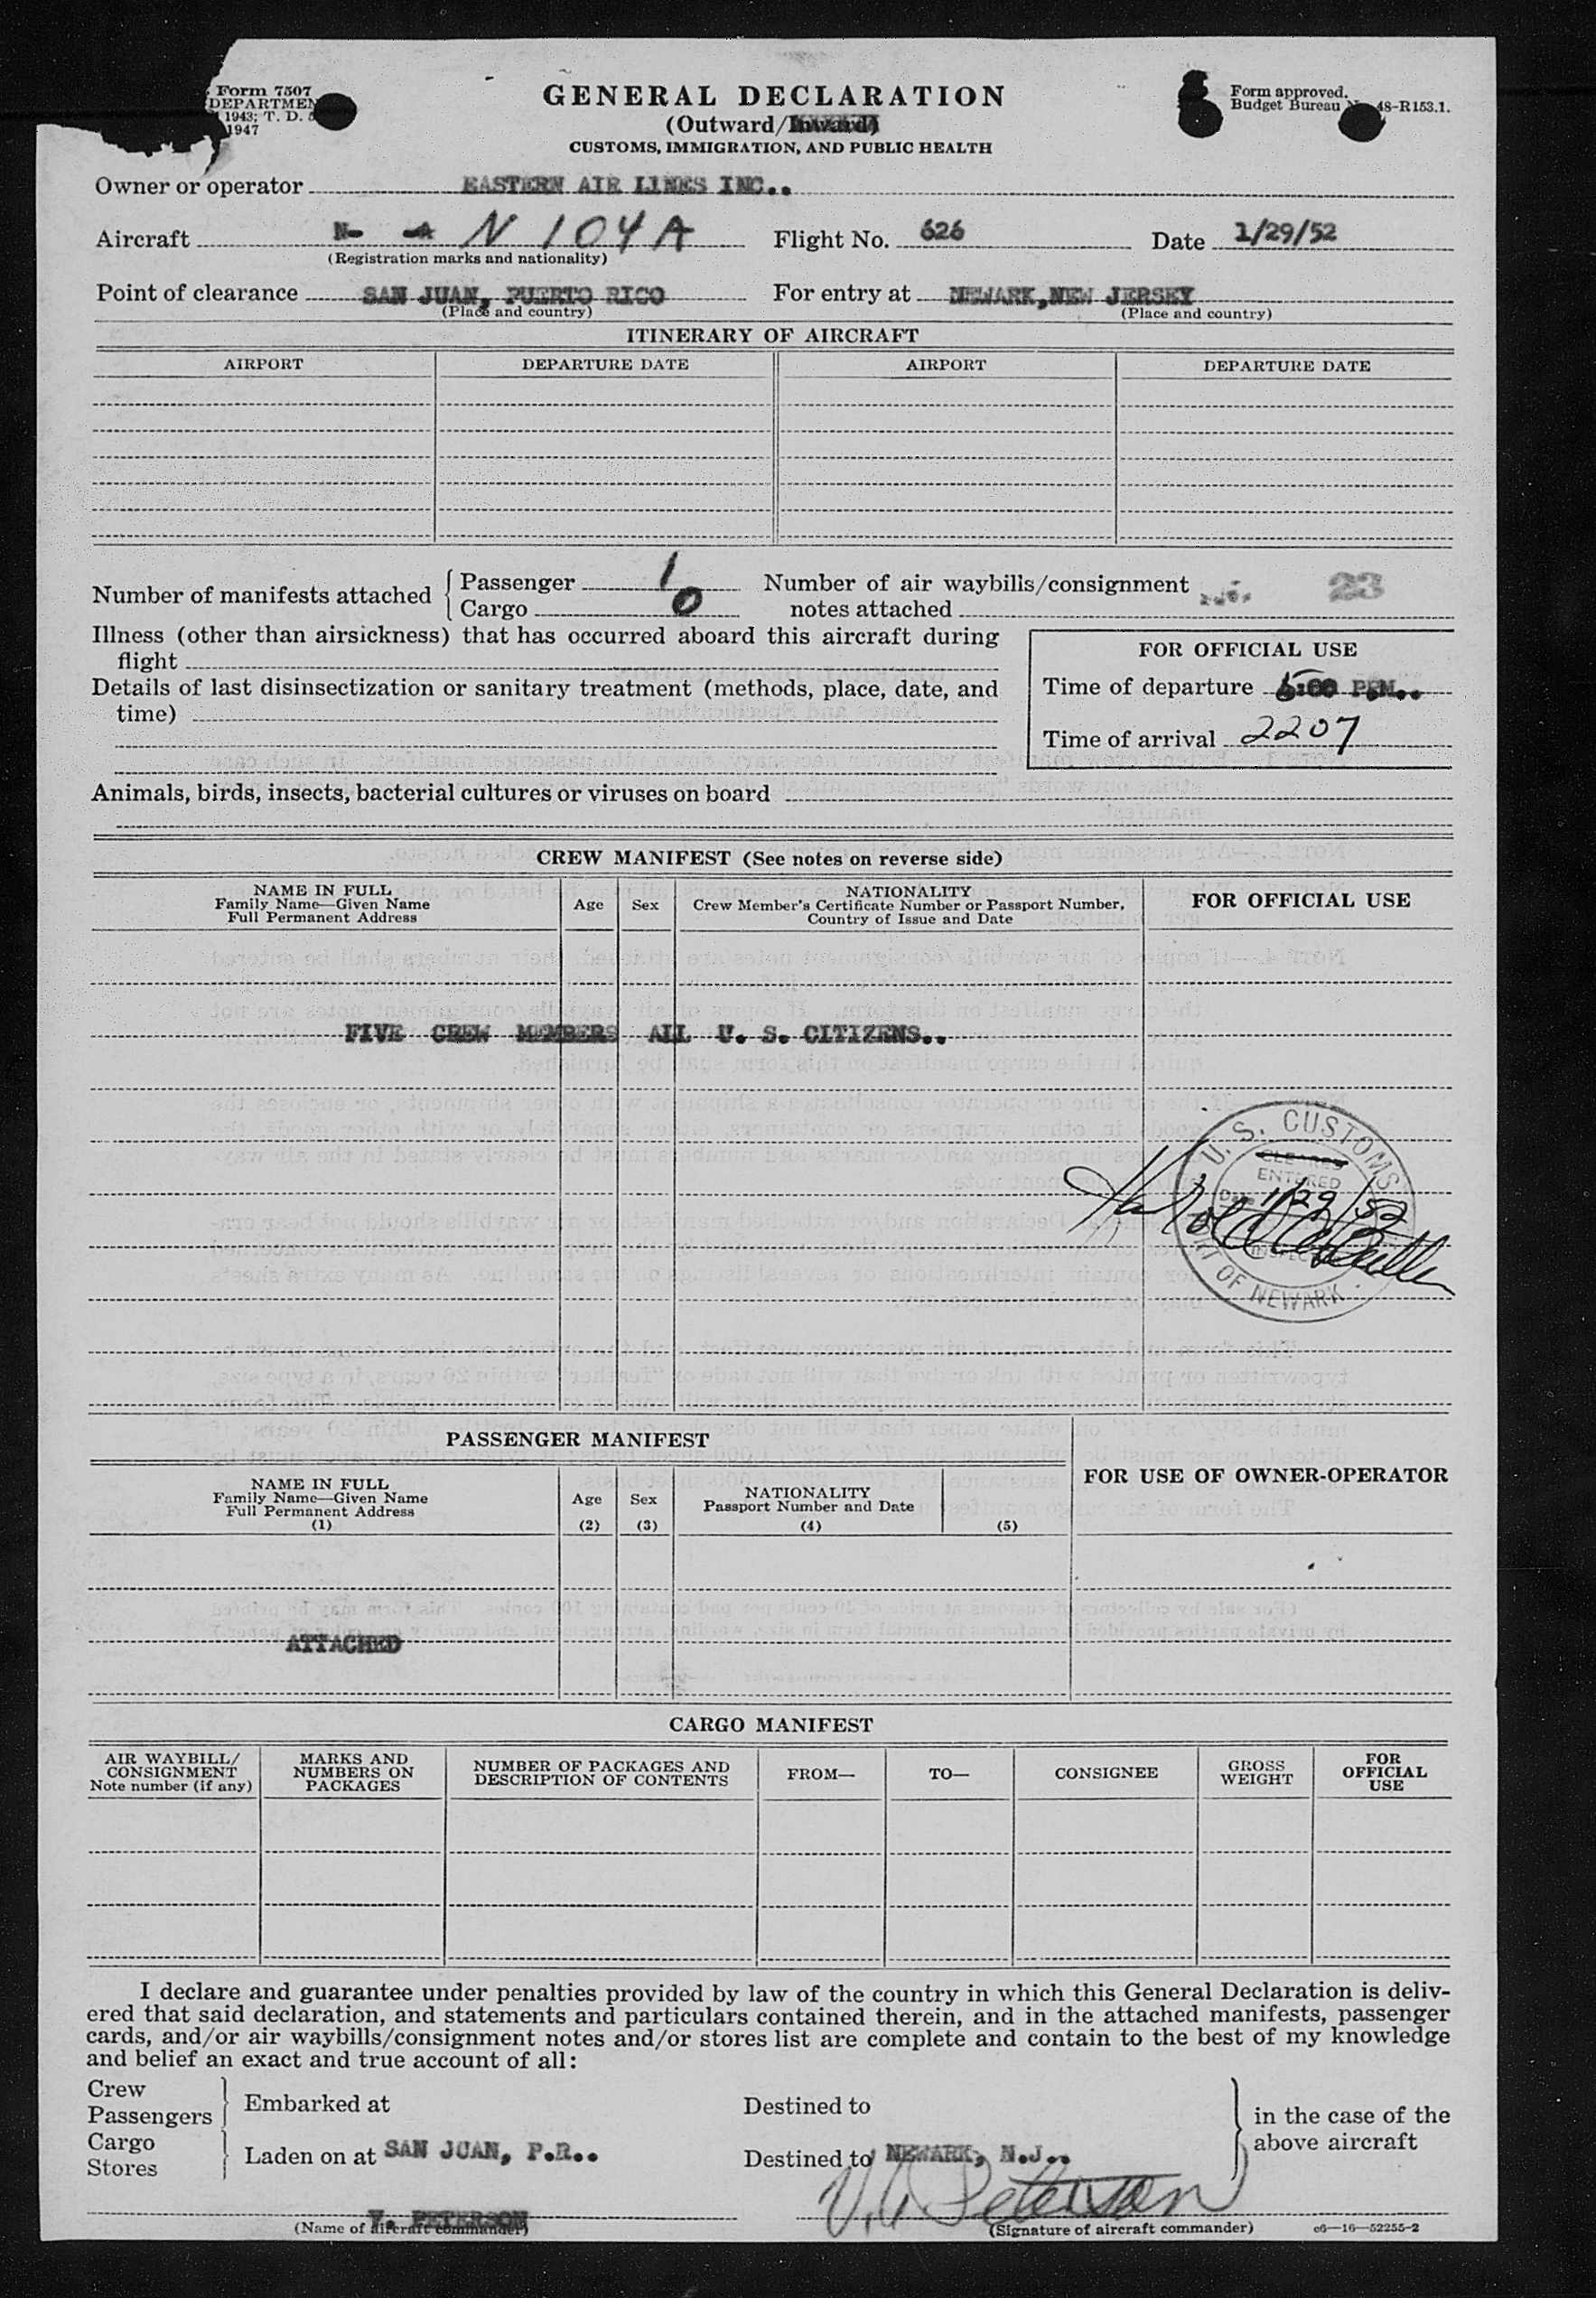 Form 7507
GENERAL DECLARATION
Form approved.
DEPARTMEN
Budget Bureau No. 48-R153.1.
1943; T. D.
1947
(Outward/Inward)
CUSTOMS, IMMIGRATION, AND PUBLIC HEALTH
Owner or operator EASTERN AIR LINES INC..
Aircraft N- -A N 104A Flight No. 626 Date 1/29/52
(Registration marks and nationality)
Point of clearance SAN JUAN, PUERTO RICO For entry at NEWARK,NEW JERSEY
(Place and country) (Place and country)
ITINERARY OF AIRCRAFT
AIRPORT DEPARTURE DATE AIRPORT DEPARTURE DATE
Number of manifests attached { Passenger 1
Cargo 0
Number of air waybills/consignment
notes attached 23
Illness (other than airsickness) that has occurred aboard this aircraft during
flight
Details of last disinsectization or sanitary treatment (methods, place, date, and
time)
FOR OFFICIAL USE
Time of departure 5:00 P.M..
Time of arrival 2207
Animals, birds, insects, bacterial cultures or viruses on board
CREW MANIFEST (See notes on reverse side)
NAME IN FULL
Family Name—Given Name
Full Permanent Address
Age
Sex
NATIONALITY
Crew Member's Certificate Number or Passport Number,
Country of Issue and Date
FOR OFFICIAL USE
FIVE CREW MEMBERS ALL U. S. CITIZENS..
U. S. CUSTOMS
CLEARED
ENTERED
Date 1/29/52
PORT OF NEWARK
PASSENGER MANIFEST
FOR USE OF OWNER-OPERATOR
NAME IN FULL
Family Name—Given Name
Full Permanent Address
(1)
Age
(2)
Sex
(3)
NATIONALITY
Passport Number and Date
(4)
(5)
ATTACHED
CARGO MANIFEST
AIR WAYBILL/
CONSIGNMENT
Note number (if any)
MARKS AND
NUMBERS ON
PACKAGES
NUMBER OF PACKAGES AND
DESCRIPTION OF CONTENTS
FROM—
TO—
CONSIGNEE
GROSS
WEIGHT
FOR
OFFICIAL
USE
I declare and guarantee under penalties provided by law of the country in which this General Declaration is deliv-
ered that said declaration, and statements and particulars contained therein, and in the attached manifests, passenger
cards, and/or air waybills/consignment notes and/or stores list are complete and contain to the best of my knowledge
and belief an exact and true account of all:
Crew
Passengers } Embarked at Destined to
Cargo
Stores } Laden on at SAN JUAN, P.R.. Destined to NEWARK, N.J..
in the case of the
above aircraft
V. PETERSON V. A. Peterson
(Name of aircraft commander) (Signature of aircraft commander) c6—16—52255-2